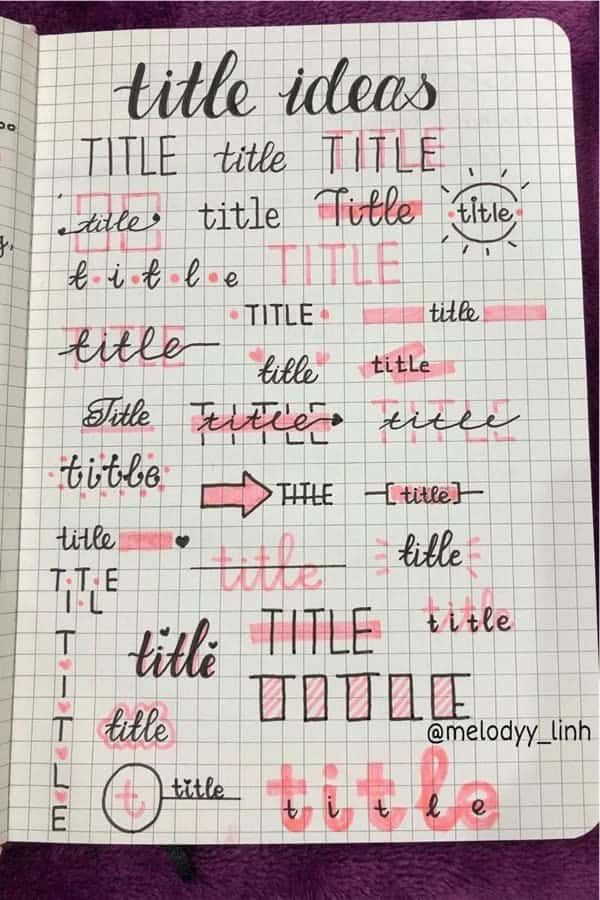 title ideas
TITLE title TITLE
title title Title title
t i t l e TITLE
TITLE title
title
title title
Title title title
title
TITLE [title]
title
title title
TITLE
TITLE title
title
TITLE
TITLE
title
@melodyy_linh
t title
title
t i t l e